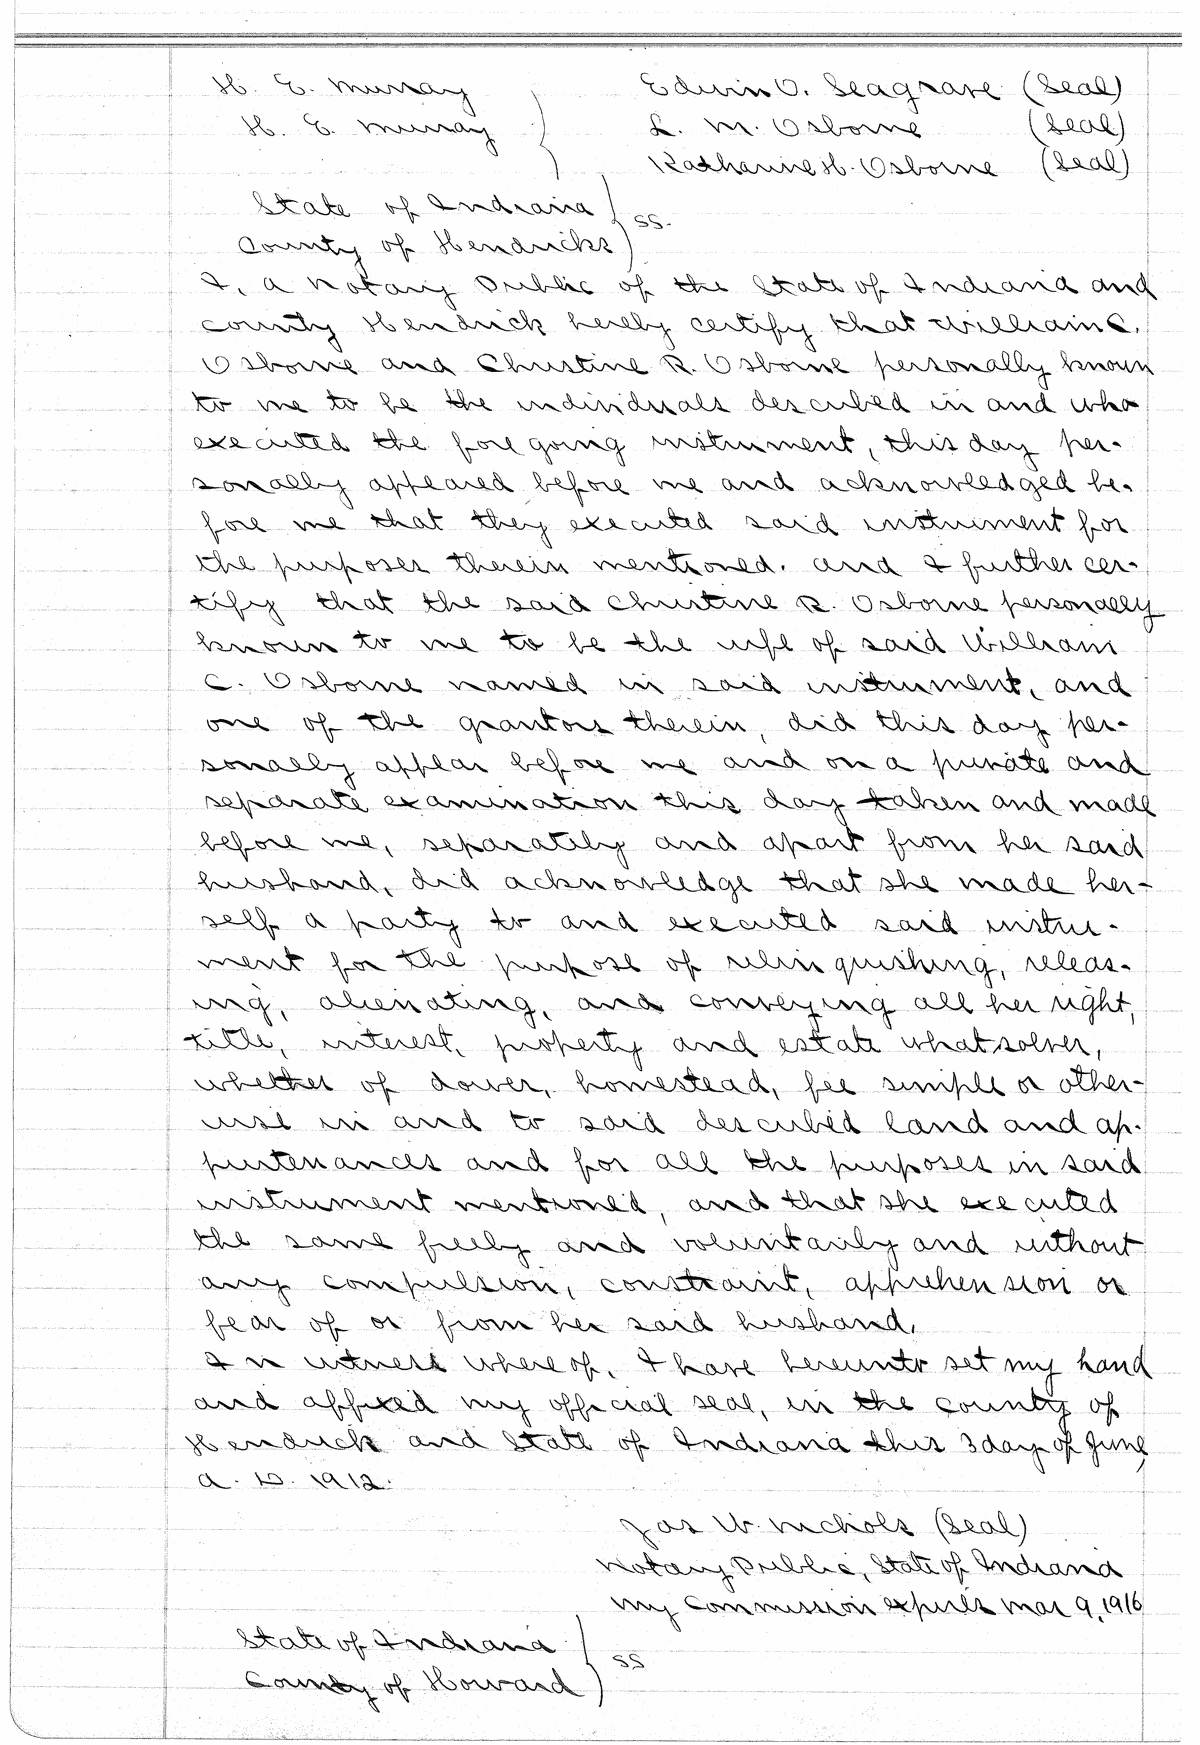 H. E. Murray Edwin O. Seagrave (Seal)
H. E. Murray L. M. Osborne (Seal)
Katharine H. Osborne (Seal)
State of Indiana
ss.
County of Hendricks
I, a Notary Public of the State of Indiana and
county Hendrick hereby certify that William C.
Osborne and Christine R. Osborne personally known
to me to be the individuals described in and who
executed the foregoing instrument, this day per-
sonally appeared before me and acknowledged be-
fore me that they executed said instrument for
the purposes therein mentioned. and I further cer-
tify that the said Christine R. Osborne personally
known to me to be the wife of said William
C. Osborne named in said instrument, and
one of the grantors therein, did this day per-
sonally appear before me and on a private and
separate examination this day taken and made
before me, separately and apart from her said
husband, did acknowledge that she made her-
self a party to and executed said instru-
ment for the purpose of relinquishing, releas-
ing, alienating, and conveying all her right,
title, interest, property and estate whatsoever,
whether of dower, homestead, fee simple or other-
wise in and to said described land and ap-
purtenances and for all the purposes in said
instrument mentioned, and that she executed
the same freely and voluntarily and without
any compulsion, constraint, apprehension or
fear of or from her said husband.
In witness whereof, I have hereunto set my hand
and affixed my official seal, in the county of
Hendrick and State of Indiana this 3 day of June
A. D. 1912.
Jas W. Nichols (Seal)
Notary Public, State of Indiana
My Commission expires Mar 9, 1916
State of Indiana
ss
County of Howard